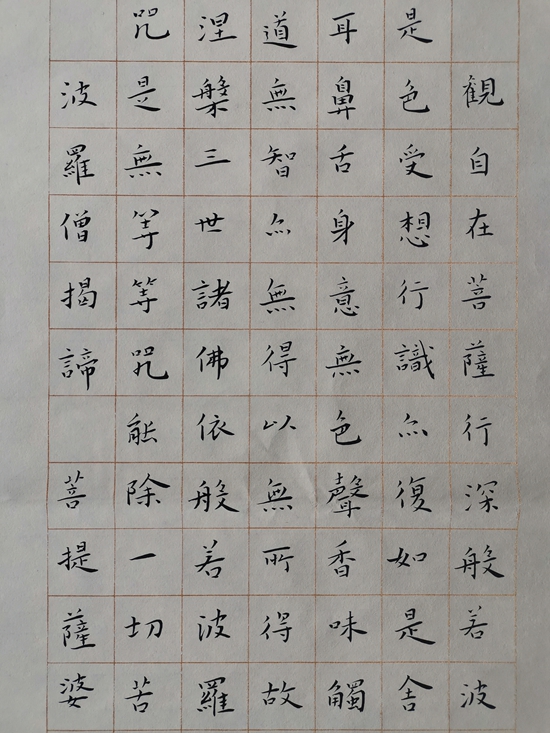 觀自在菩薩行深般若波
是色受想行識亦復如是舍
耳鼻舌身意無色聲香味觸
道無智亦無得以無所得故
涅槃三世諸佛依般若波羅
咒是無等等咒能除一切苦
波羅僧揭諦 菩提薩婆